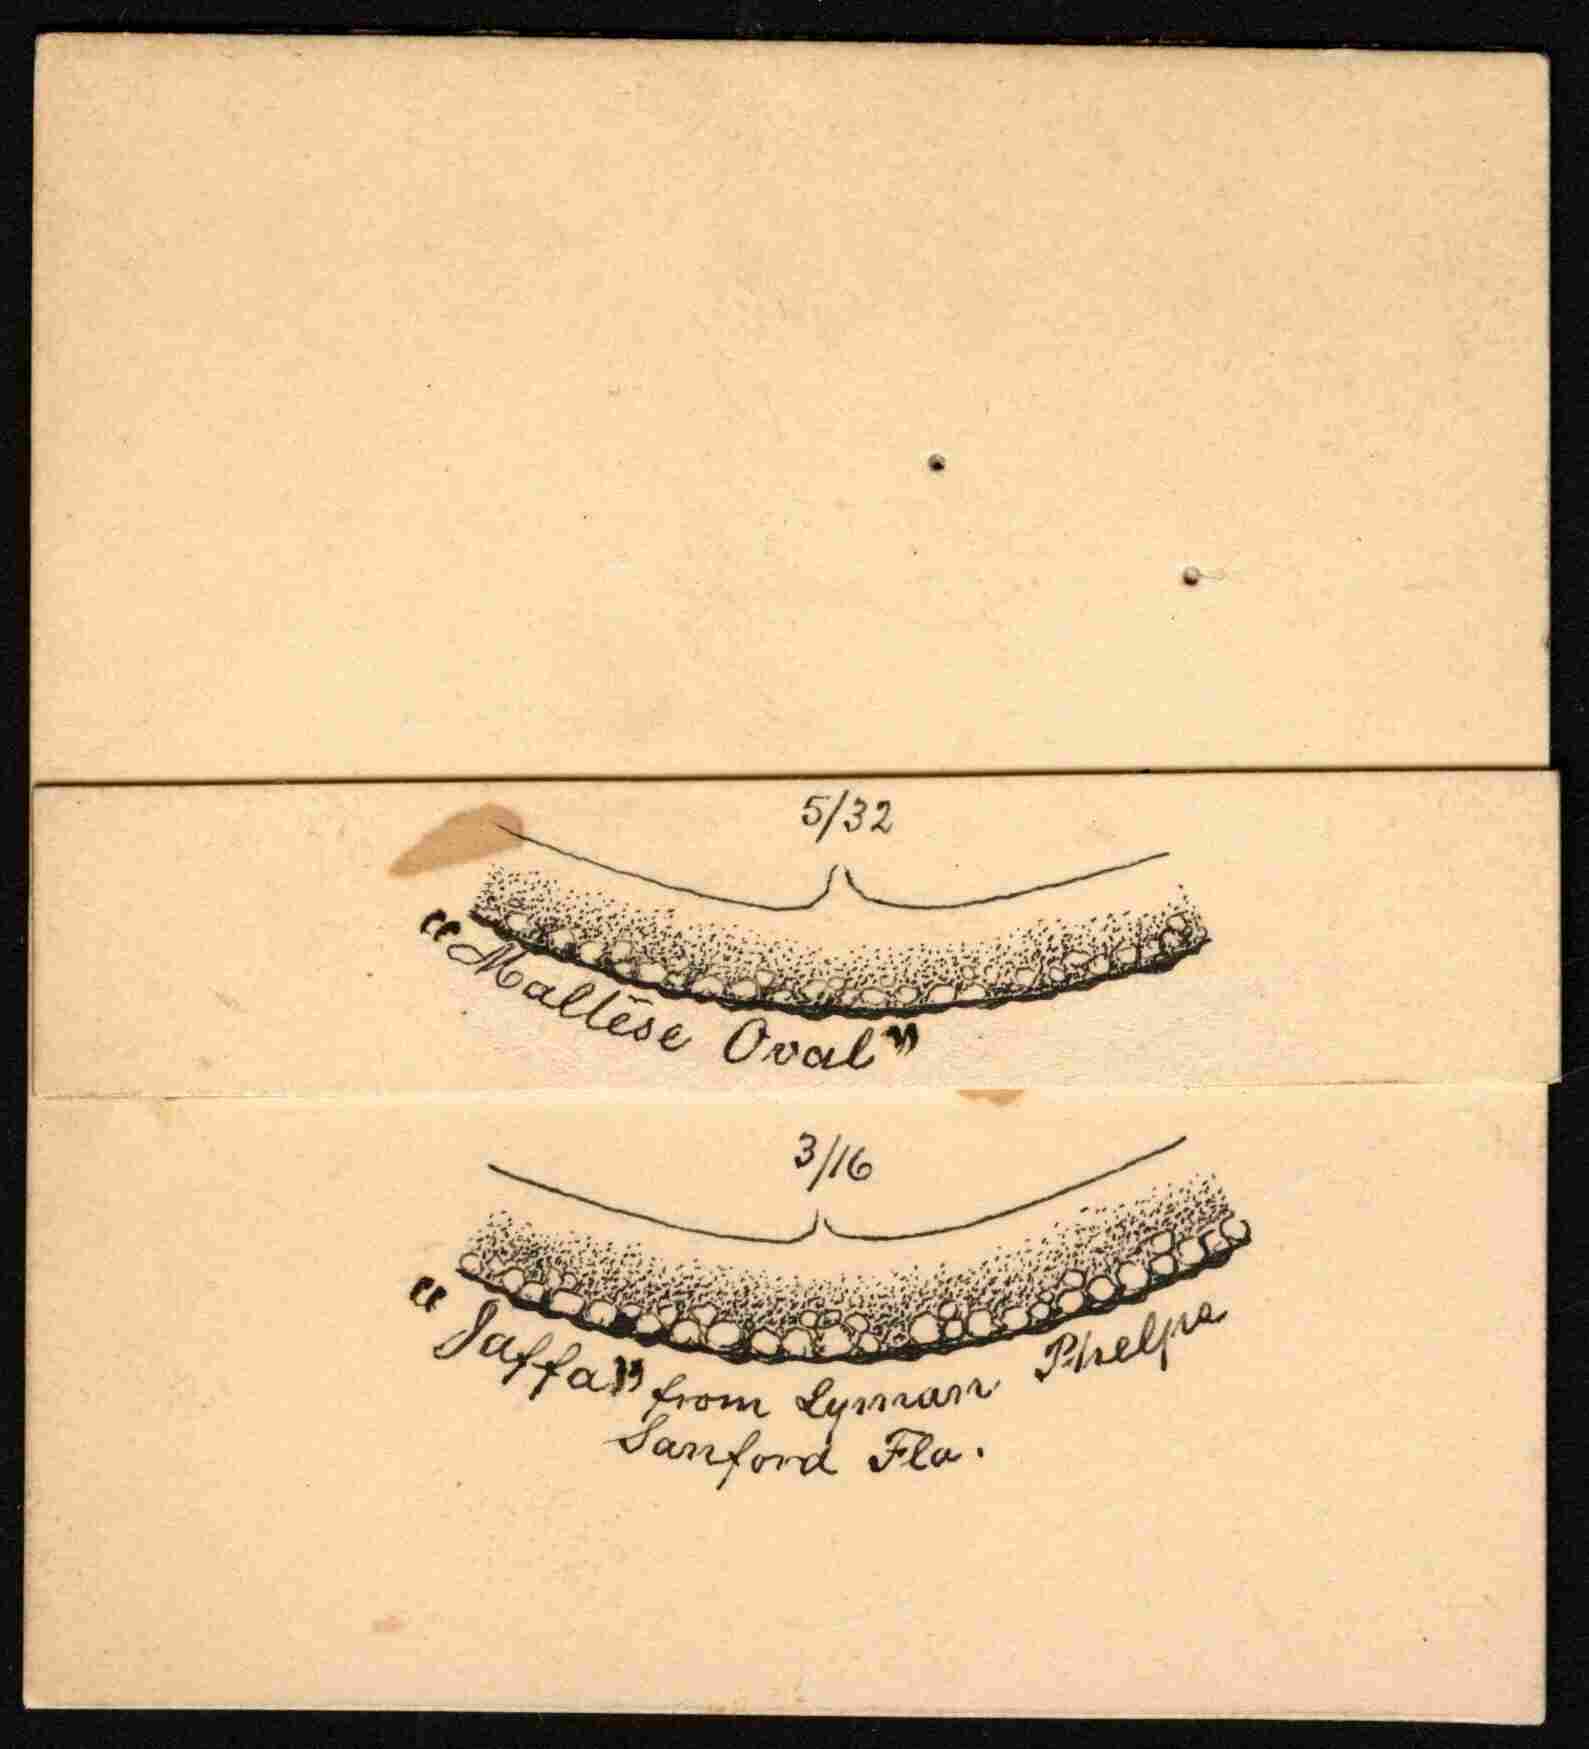 5/32
"Maltese Oval"
3/16
"Jaffa" from Lyman Phelps
Sanford Fla.